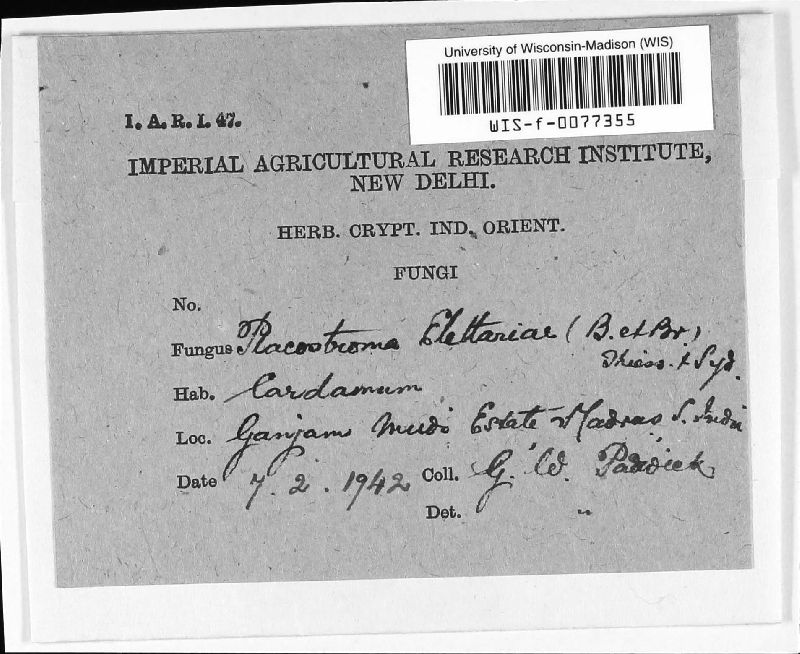 University of Wisconsin-Madison (WIS)
WIS-f-0077355
I. A. R. I. 47.
IMPERIAL AGRICULTURAL RESEARCH INSTITUTE,
NEW DELHI.
HERB. CRYPT. IND. ORIENT.
FUNGI
No.
Fungus Placostroma Elettariae (B. et Br.)
Theiss. & Syd.
Hab. Cardamum
Loc. Ganjam Mudi Estate Madras S. India
Date 7. 2. 1942 Coll. G. W. Padwick
Det. "